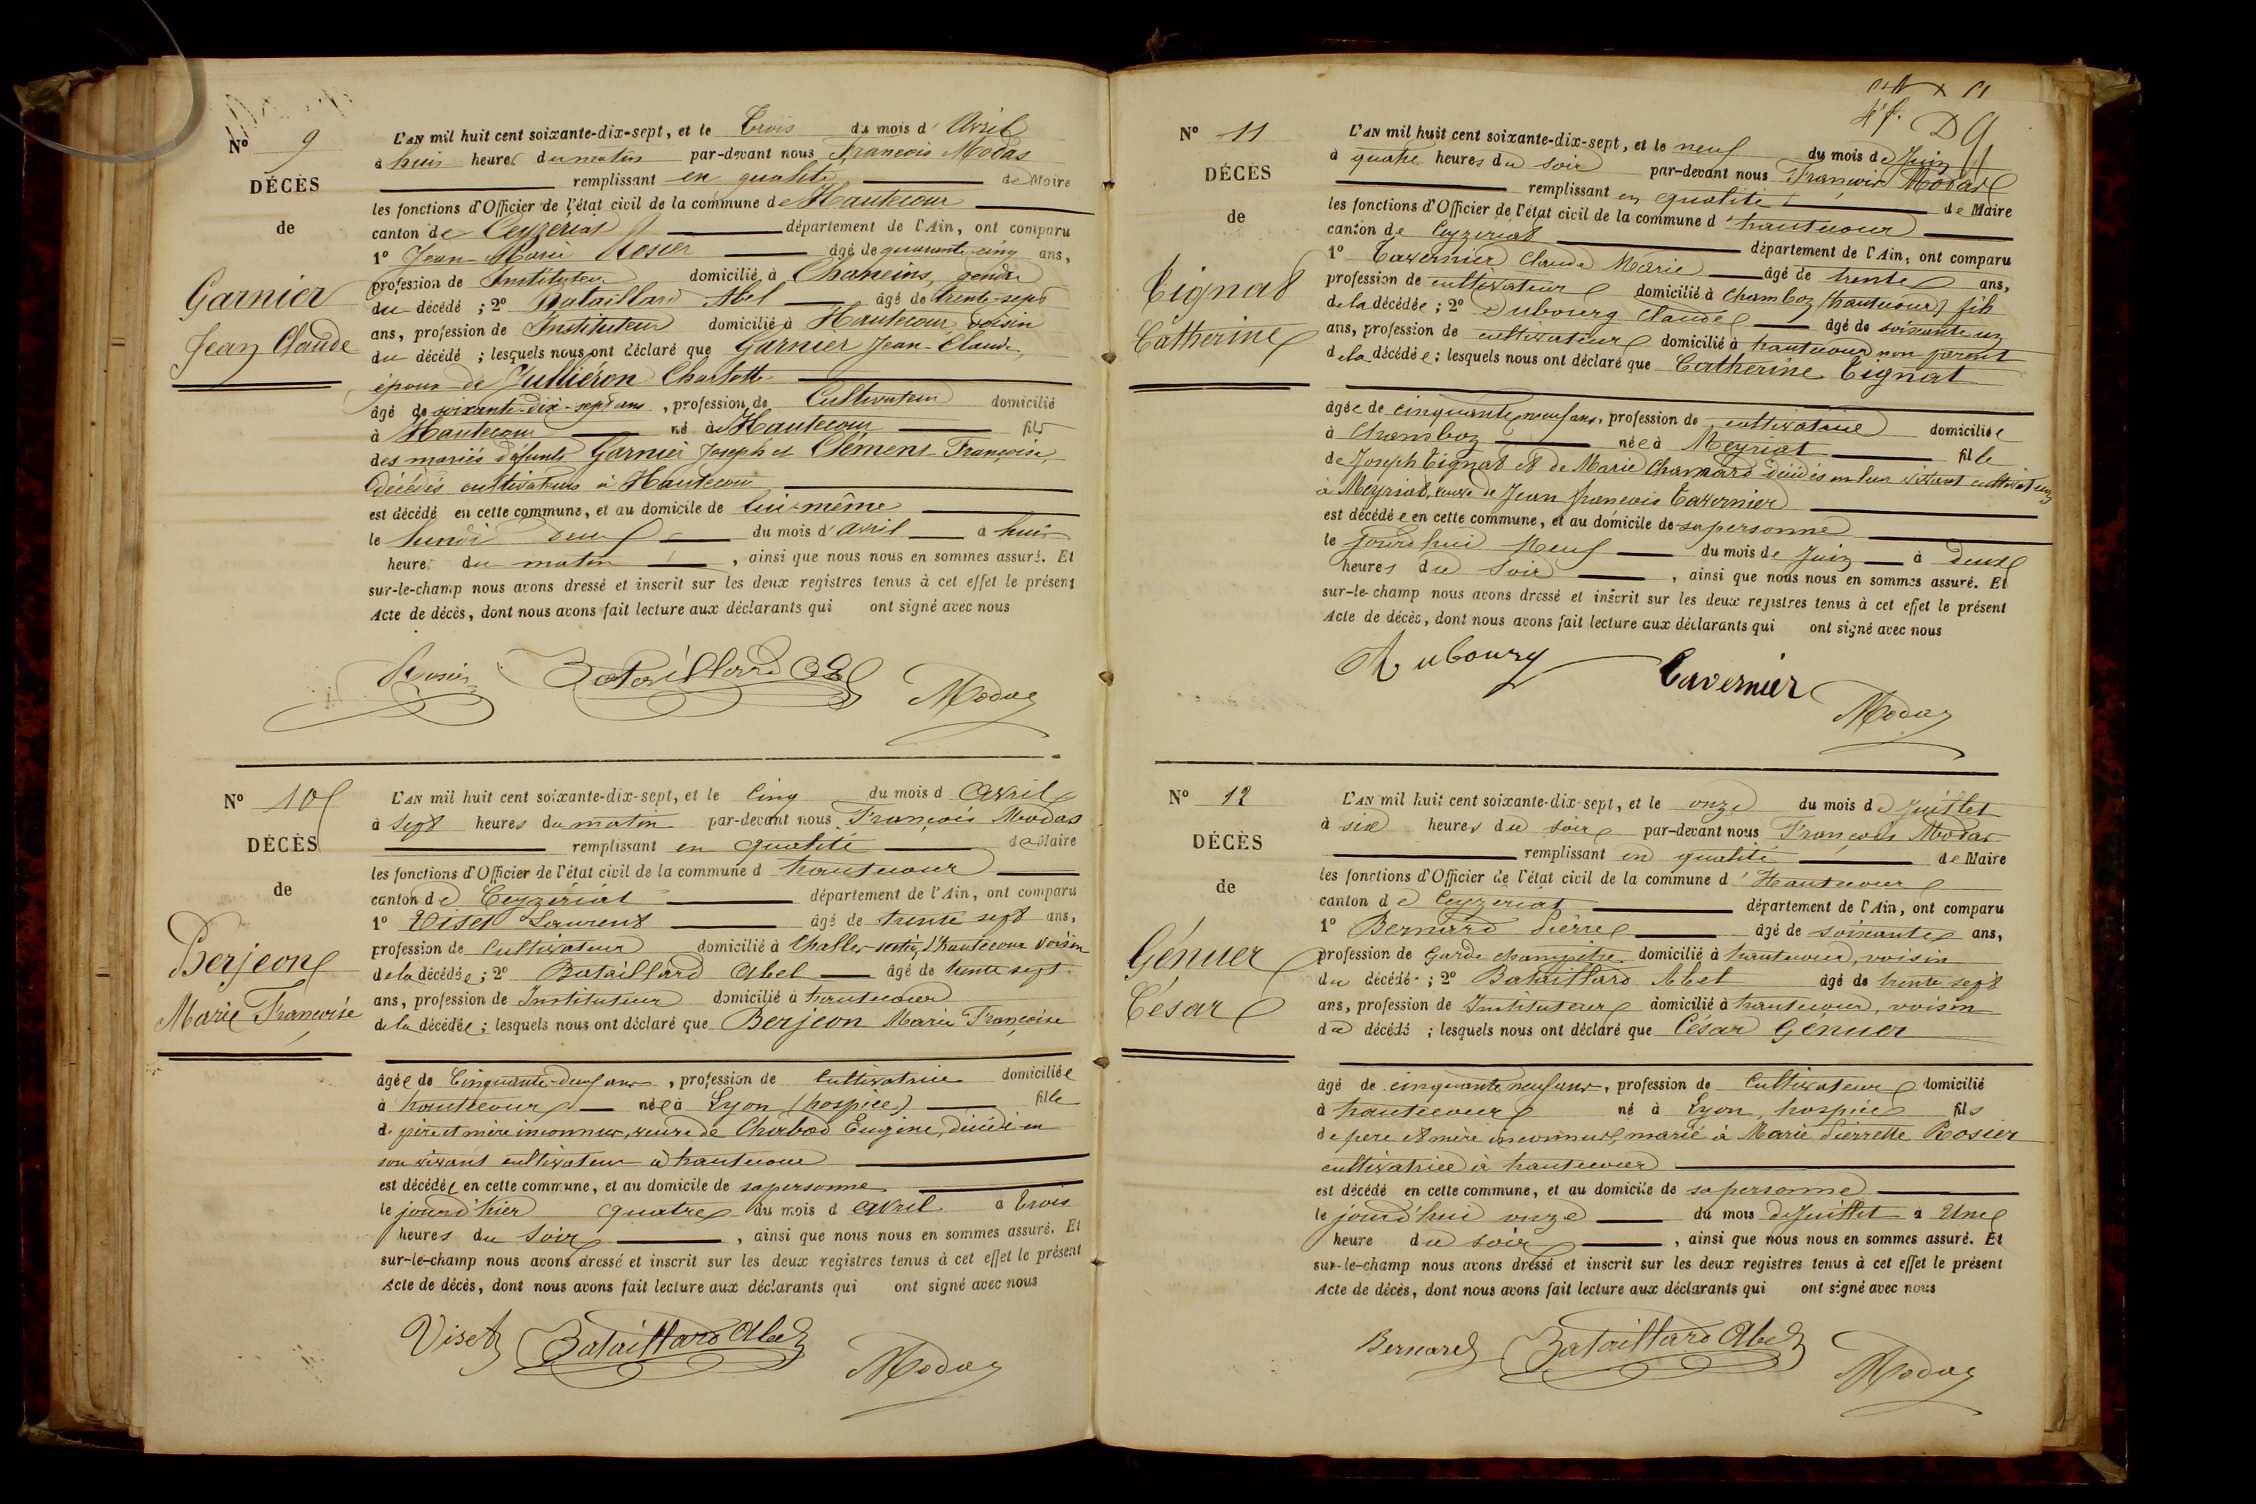 Nº 9
DÉCÈS
de
Garnier
Jean Claude
L'AN mil huit cent soixante-dix-sept, et le Trois du mois d' Avril
à huit heures du matin par-devant nous François Modas
remplissant en qualité de Maire
les fonctions d'Officier de l'état civil de la commune de Hautecour
canton de Ceyzériat département de l'Ain, ont comparu
1º Jean-Marie Rosier âgé de quarante-cinq ans,
profession de Instituteur domicilié à Chaneins, gendre
du décédé ; 2º Bataillard Abel âgé de trente-sept
ans, profession de Instituteur domicilié à Hautecour voisin
du décédé ; lesquels nous ont déclaré que Garnier Jean-Claude
époux de Jullièron Charlotte
âgé de soixante-dix-sept ans, profession de Cultivateur domicilié
à Hautecour né à Hautecour fils
des mariés défunts Garnier Joseph et Clément Françoise,
décédés cultivateurs à Hautecour
est décédé en cette commune, et au domicile de lui-même
le lundi deux du mois d'avril à huit
heures du matin, ainsi que nous nous en sommes assuré. Et
sur-le-champ nous avons dressé et inscrit sur les deux registres tenus à cet effet le présent
Acte de décès, dont nous avons fait lecture aux déclarants qui ont signé avec nous
Rosier Bataillard Abel Modas
Nº 10
DÉCÈS
de
Berjeon
Marie Françoise
L'AN mil huit cent soixante-dix-sept, et le cinq du mois d Avril
à sept heures du matin par-devant nous François Modas
remplissant en qualité de Maire
les fonctions d'Officier de l'état civil de la commune d hautecour
canton de Ceyzériat département de l'Ain, ont comparu
1º Viset Laurent âgé de trente sept ans,
profession de Cultivateur domicilié à Challes d'hautecour voisin
de la décédée ; 2º Bataillard Abel âgé de trente sept
ans, profession de Instituteur domicilié à hautecour
de la décédée ; lesquels nous ont déclaré que Berjeon Marie Françoise
âgée de Cinquante-deux ans, profession de Cultivatrice domiciliée
à hautecour née à Lyon (hospice) fille
de père et mère inconnus, veuve de Chorbod Eugène, décédé en
son vivant cultivateur à hautecour
est décédée en cette commune, et au domicile de sa personne
le jour d'hier quatre du mois d avril à trois
heures du soir, ainsi que nous nous en sommes assuré. Et
sur-le-champ nous avons dressé et inscrit sur les deux registres tenus à cet effet le présent
Acte de décès, dont nous avons fait lecture aux déclarants qui ont signé avec nous
Viset Bataillard Abel Modas
Nº 11
DÉCÈS
de
Tignat
Catherine
L'AN mil huit cent soixante-dix-sept, et le neuf du mois de Juin
à quatre heures du soir par-devant nous François Modas
remplissant en qualité de Maire
les fonctions d'Officier de l'état civil de la commune d'hautecour
canton de Ceyzeriat département de l'Ain, ont comparu
1º Tavernier Claude Marie âgé de trente ans,
profession de cultivateur domicilié à Chamboz (hautecour) fils
de la décédée ; 2º Dubourg Claude âgé de soixante un
ans, profession de cultivateur domicilié à hautecour non parent
de la décédée ; lesquels nous ont déclaré que Catherine Tignat
âgée de cinquante neuf ans, profession de cultivatrice domiciliée
à Chamboz née à Meyriat fille
de Joseph Tignat et de Marie Chanard décédés en leur vivant cultivateurs
à Meyriat, veuve de Jean françois Tavernier
est décédée en cette commune, et au domicile de sa personne
le jourd'hui Neuf du mois de Juin à deux
heures du soir, ainsi que nous nous en sommes assuré. Et
sur-le-champ nous avons dressé et inscrit sur les deux registres tenus à cet effet le présent
Acte de décès, dont nous avons fait lecture aux déclarants qui ont signé avec nous
Dubourg Tavernier Modas
Nº 12
DÉCÈS
de
Génuer
César
L'AN mil huit cent soixante-dix-sept, et le onze du mois de Juillet
à six heures du soir par-devant nous François Modas
remplissant en qualité de Maire
les fonctions d'Officier de l'état civil de la commune d'Hautecour
canton de Ceyzeriat département de l'Ain, ont comparu
1º Bernard Pierre âgé de soixante ans,
profession de Garde champêtre domicilié à hautecour, voisin
du décédé ; 2º Bataillard Abel âgé de trente sept
ans, profession de Instituteur domicilié à hautecour, voisin
du décédé ; lesquels nous ont déclaré que César Génuer
âgé de cinquante neuf ans, profession de Cultivateur domicilié
à hautecour né à Lyon, hospice fils
de père et mère inconnus, marié à Marie Pierrette Rosier
cultivatrice à hautecour
est décédé en cette commune, et au domicile de sa personne
le jourd'hui onze du mois de Juillet à Une
heure du soir, ainsi que nous nous en sommes assuré. Et
sur-le-champ nous avons dressé et inscrit sur les deux registres tenus à cet effet le présent
Acte de décès, dont nous avons fait lecture aux déclarants qui ont signé avec nous
Bernard Bataillard Abel Modas